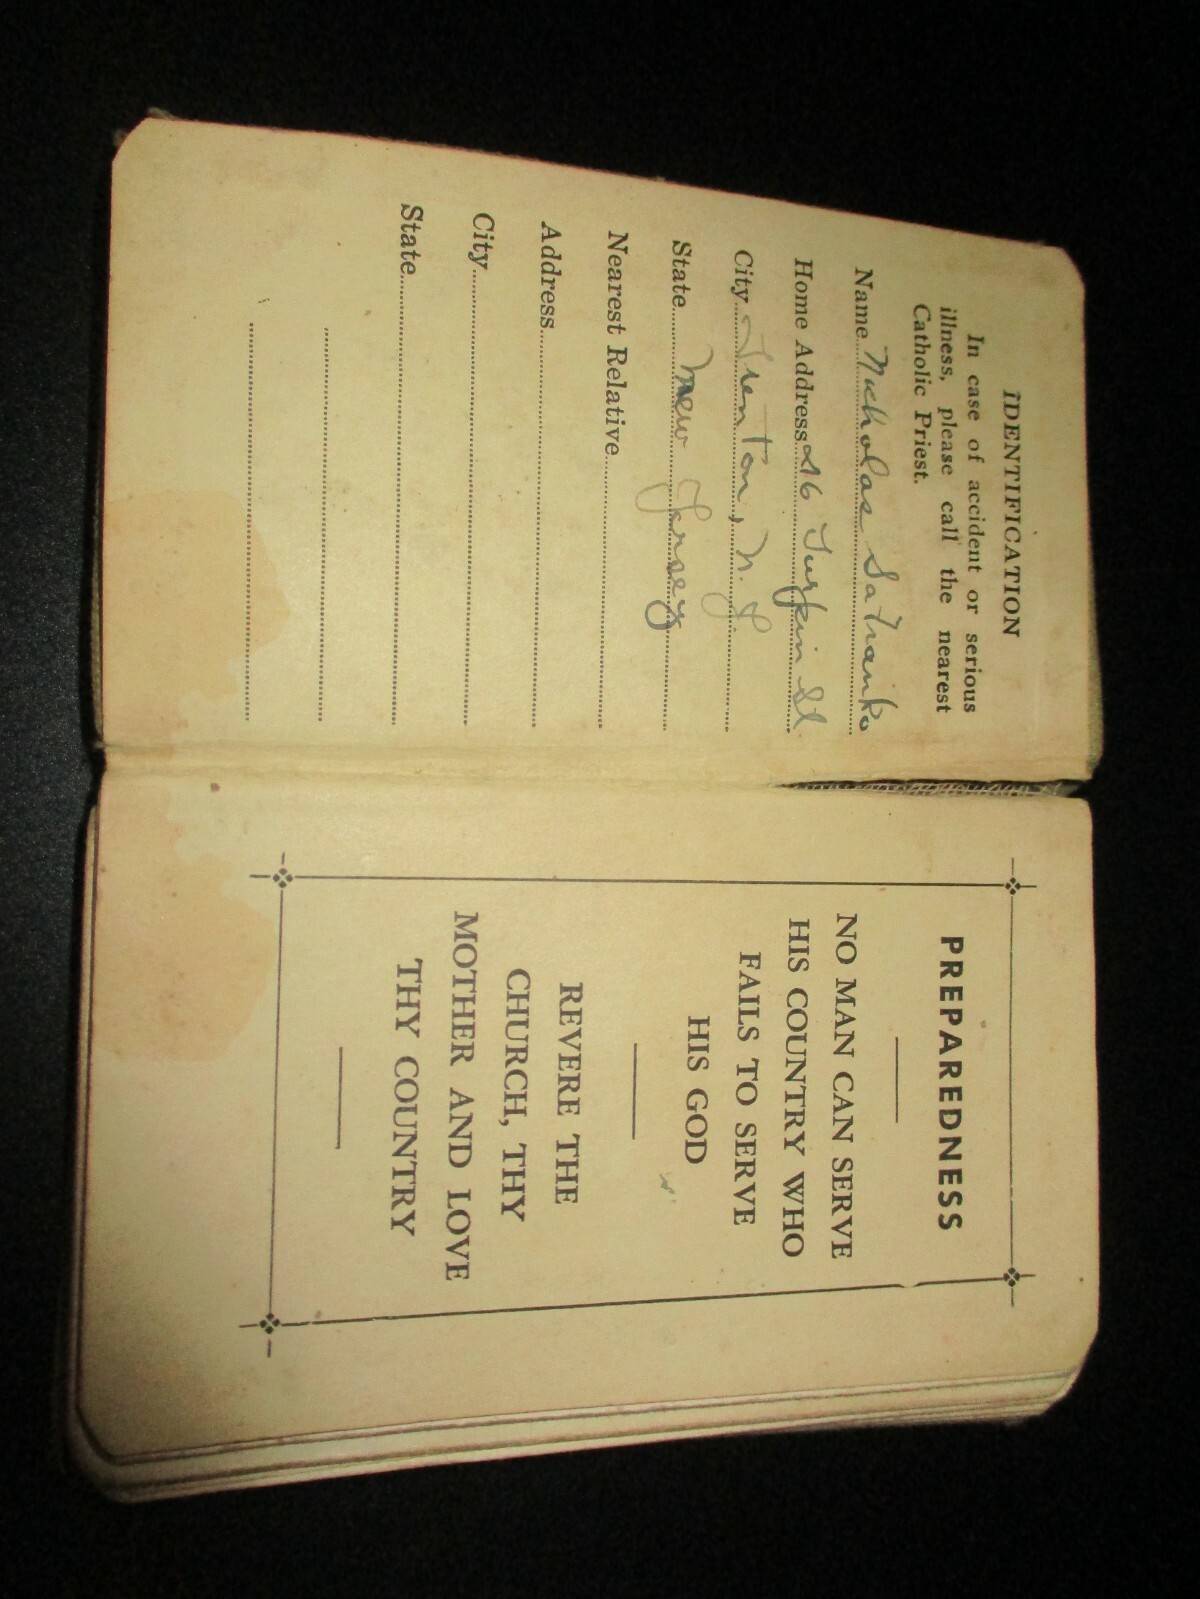 IDENTIFICATION
In case of accident or serious
illness, please call the nearest
Catholic Priest.
Name Nicholas Satranko
Home Address 216 Turpin St.
City Trenton, N. J.
State New Jersey
Nearest Relative
Address
City
State
PREPAREDNESS
NO MAN CAN SERVE
HIS COUNTRY WHO
FAILS TO SERVE
HIS GOD
REVERE THE
CHURCH, THY
MOTHER AND LOVE
THY COUNTRY